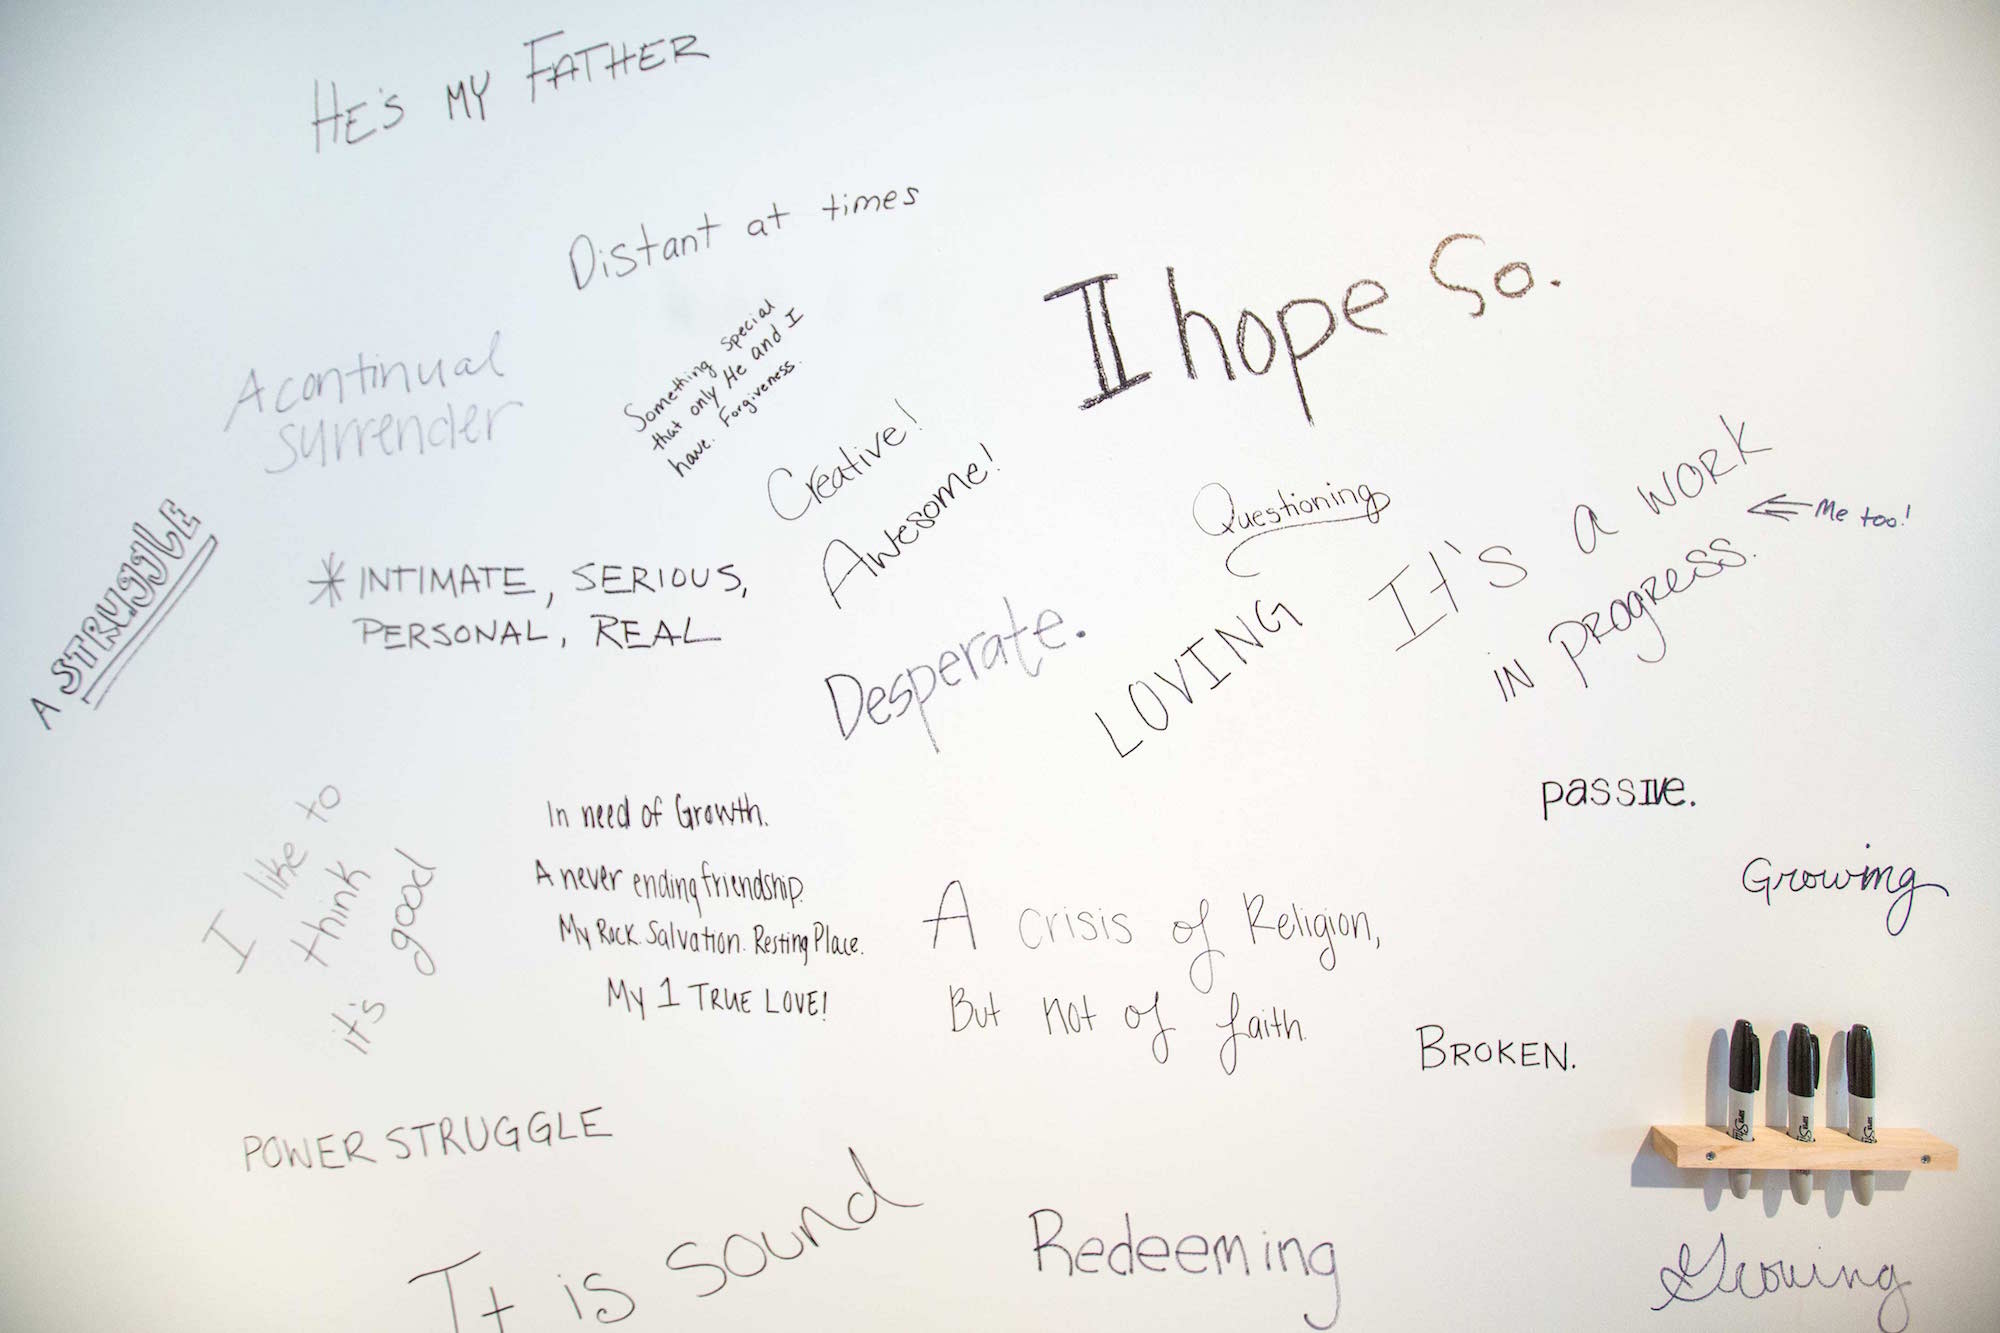 HE'S MY FATHER
Distant at times
I hope So.
A continual
surrender
Something special
that only He and I
have. Forgiveness.
Creative!
Awesome!
Questioning
It's a work
in progress.
Me too!
A STRUGGLE
INTIMATE, SERIOUS,
PERSONAL, REAL
Desperate.
LOVING
passive.
I like to
think
it's good
In need of Growth.
A never ending friendship.
My Rock. Salvation. Resting Place.
My 1 TRUE LOVE!
Growing
A crisis of Religion,
But not of faith.
BROKEN.
POWER STRUGGLE
It is sound
Redeeming
Growing